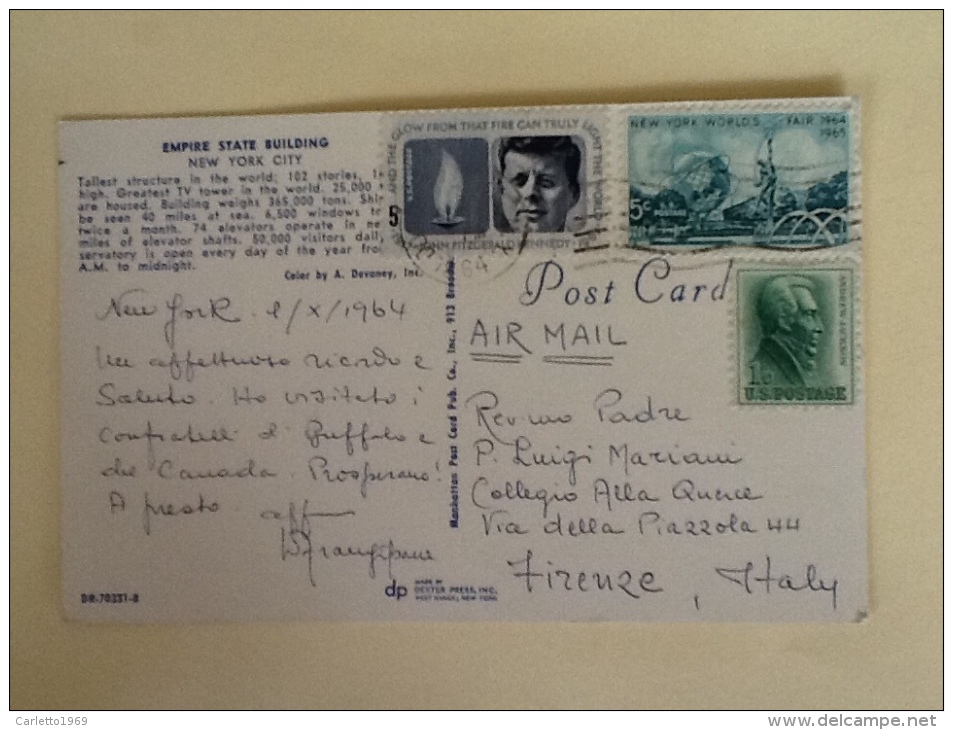 EMPIRE STATE BUILDING
NEW YORK CITY
Tallest structure in the world; 102 stories,
high. Greatest TV tower in the world. 25,000
are housed. Building weighs 365,000 tons.
be seen 40 miles at sea. 6,500 windows
twice a month. 74 elevators operate in
miles of elevator shafts. 50,000 visitors daily,
servatory is open every day of the year from
A.M. to midnight.
Color by A. Devaney, Inc.
New York 1/X/1964
Un affettuoso ricordo e
Saluto. Ho visitato i
confratelli di Buffalo e
del Canada. Prosperano!
A presto. aff
DR-70331-B
Manhattan Post Card Pub. Co., Inc., 913
dp
MADE BY
DEXTER PRESS, INC.
WEST NYACK, NEW YORK
AND THE GLOW FROM THAT FIRE CAN TRULY LIGHT THE WORLD
5
JOHN FITZGERALD KENNEDY
64
NEW YORK WORLD'S FAIR 1964
1965
5c
POSTAGE
Post Card
AIR MAIL
ANDREW JACKSON
1c
U.S. POSTAGE
Rev.mo Padre
P. Luigi Mariani
Collegio Alla Querce
Via della Piazzola 44
Firenze, Italy
Carletto1969
delcampe.net